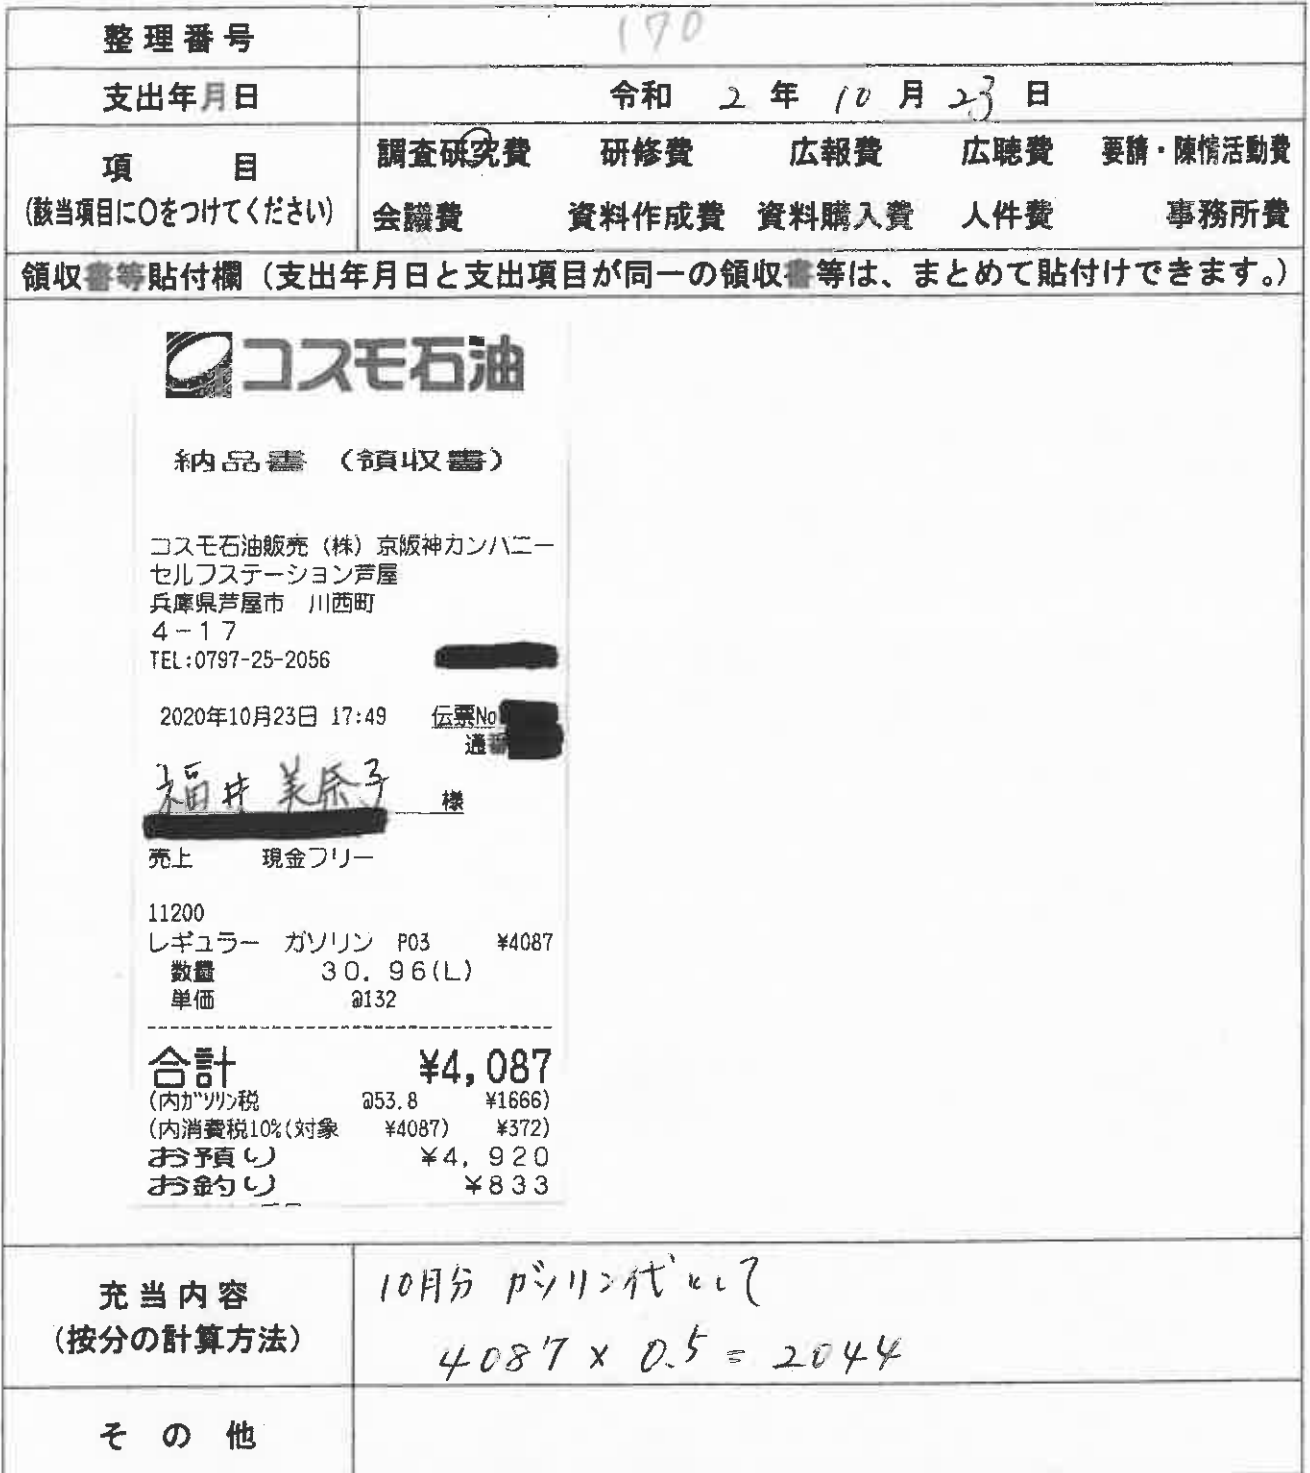 整理番号 170
支出年月日 令和 2 年 10 月 23 日
項目 調査研究費 研修費 広報費 広聴費 要請・陳情活動費
(該当項目に〇をつけてください) 会議費 資料作成費 資料購入費 人件費 事務所費
領収書等貼付欄(支出年月日と支出項目が同一の領収書等は、まとめて貼付けできます。)
コスモ石油
納品書 (領収書)
コスモ石油販売(株)京阪神カンパニー
セルフステーション芦屋
兵庫県芦屋市 川西町
4-17
TEL:0797-25-2056
2020年10月23日 17:49 伝票No
通番
福井 美奈子 様
売上 現金フリー
11200
レギュラー ガソリン P03 ¥4087
数量 30.96(L)
単価 @132
合計 ¥4,087
(内ガソリン税 @53.8 ¥1666)
(内消費税10%(対象 ¥4087) ¥372)
お預り ¥4,920
お釣り ¥833
充当内容 10月分 ガソリン代として
(按分の計算方法) 4087 × 0.5 = 2044
その他